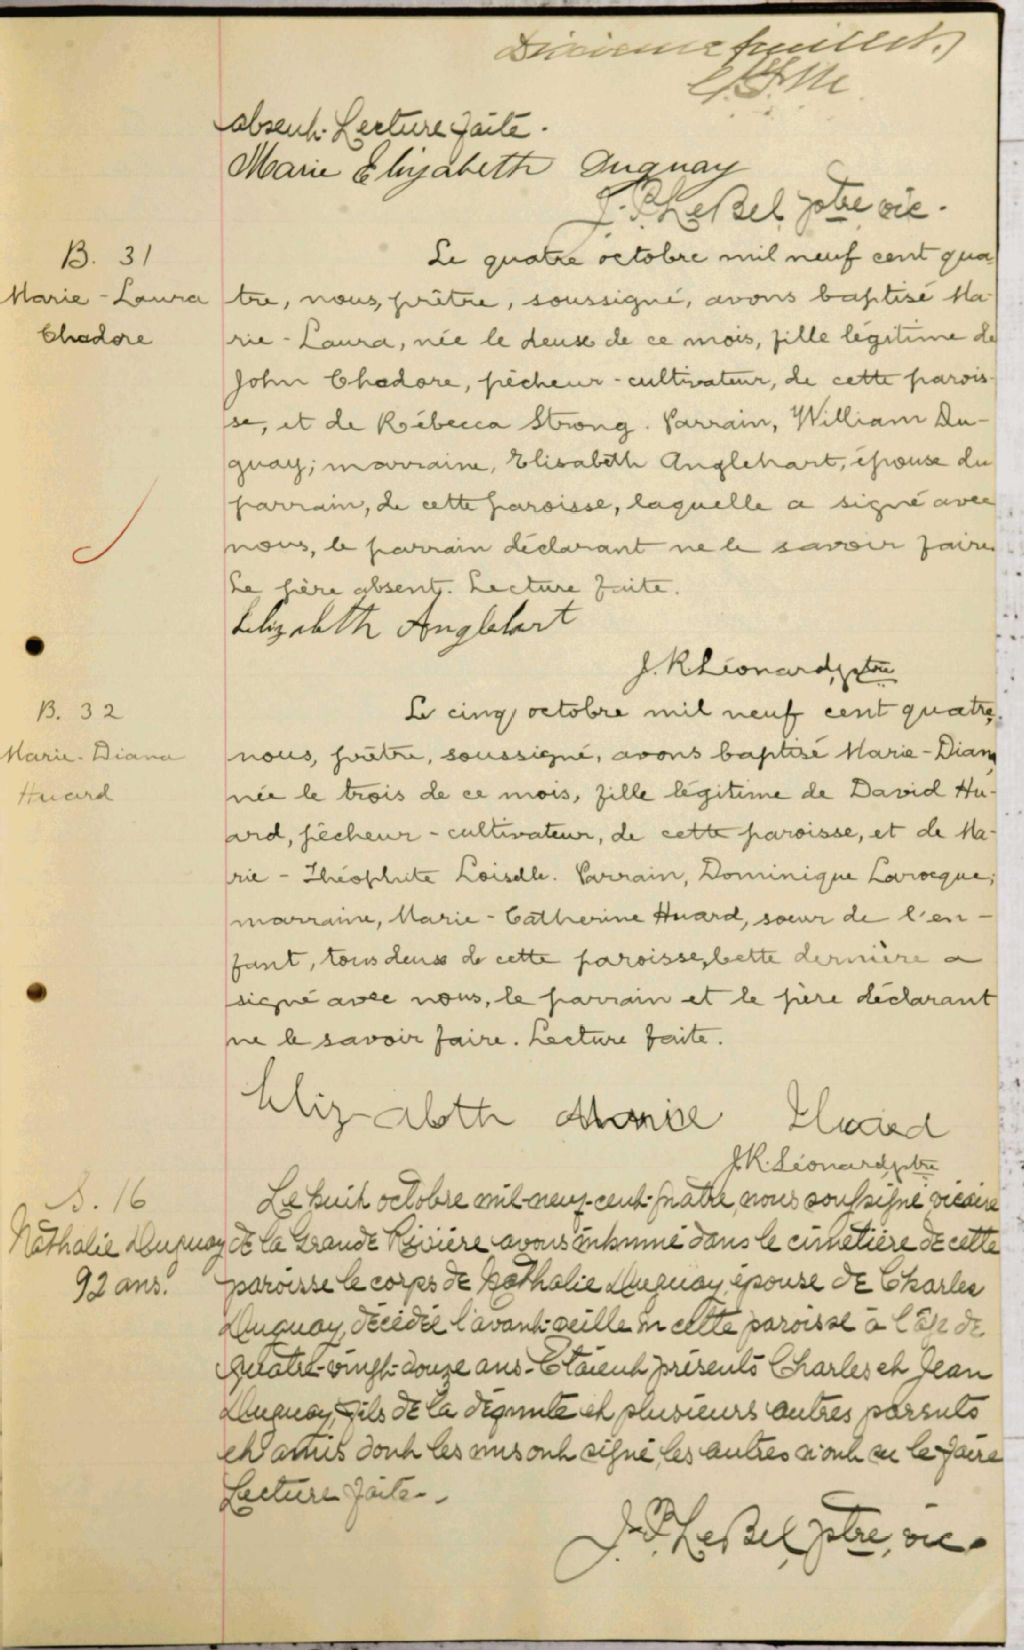 Dixième feuillet.
absent. Lecture faite.
Marie Elizabeth Duguay
J. P. LeBel, ptre vic.
B. 31
Marie-Laura
Chedore
Le quatre octobre mil neuf cent qua-
tre, nous, prêtre, soussigné, avons baptisé Ma-
rie-Laura, née le deux de ce mois, fille légitime de
John Chedore, pêcheur-cultivateur, de cette parois-
se, et de Rébecca Strong. Parrain, William Du-
guay; marraine, Elisabeth Anglehart, épouse du
parrain, de cette paroisse, laquelle a signé avec
nous, le parrain déclarant ne le savoir faire.
Le père absent. Lecture faite.
Elizabeth Anglehart
J. R. Léonard, ptre
B. 32
Marie-Diana
Huard
Le cinq octobre mil neuf cent quatre,
nous, prêtre, soussigné, avons baptisé Marie-Diana,
née le trois de ce mois, fille légitime de David Hu-
ard, pêcheur-cultivateur, de cette paroisse, et de Ma-
rie-Théophite Loiselle. Parrain, Dominique Larocque;
marraine, Marie-Catherine Huard, soeur de l'en-
fant, tous deux de cette paroisse, cette dernière a
signé avec nous, le parrain et le père déclarant
ne le savoir faire. Lecture faite.
Elizabeth Huard
J. R. Léonard, ptre
S. 16
Nathalie Duguay
92 ans.
Le huit octobre mil-neuf-cent-quatre, nous soussigné, vicaire
de la Grande Rivière avons inhumé dans le cimetière de cette
paroisse le corps de Nathalie Duguay, épouse de Charles
Duguay, décédée l'avant-veille en cette paroisse à l'âge de
quatre-vingt-douze ans. Etaient présents Charles et Jean
Duguay, fils de la défunte et plusieurs autres parents
et amis dont les uns ont signé, les autres n'ont su le faire
Lecture faite.
J. P. LeBel, ptre, vic.